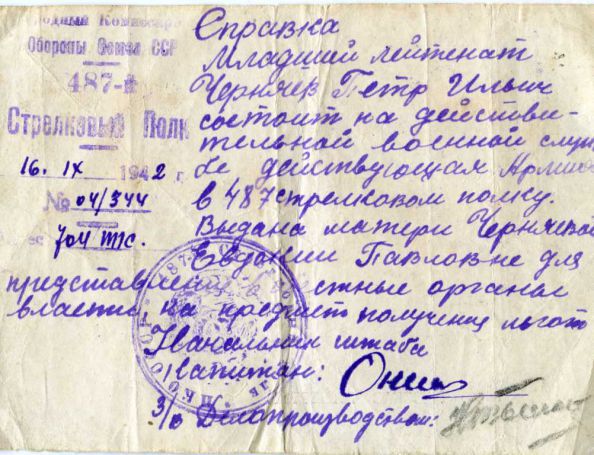 Народный Комиссар
Обороны Союза ССР
487-й
Стрелковый Полк
16. IX 1942 г.
№ 04/344
704 ТПС.
Справка
Младший лейтенат
Черняев Петр Ильич
состоит на действи-
тельной военной служ
бе действующая Армия
в 487 стрелковом полку.
Выдана матери Черняевой
Евдокии Павловне для
представления в стные органы
власти на предмет получения льгот
Начальник штаба
капитан:
З/в Делопроизводством: